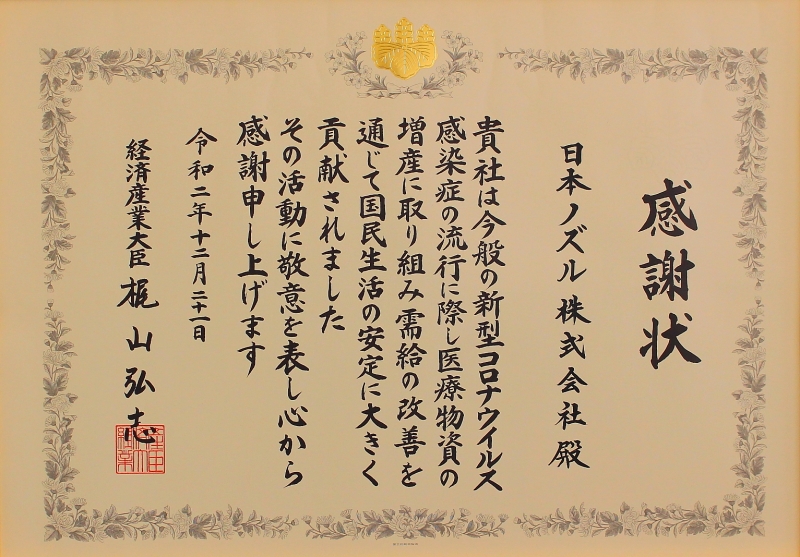 感謝状
日本ノズル株式会社殿
貴社は今般の新型コロナウイルス
感染症の流行に際し医療物資の
増産に取り組み需給の改善を
通じて国民生活の安定に大きく
貢献されました
その活動に敬意を表し心から
感謝申し上げます
令和二年十二月二十一日
経済産業大臣 梶山弘志